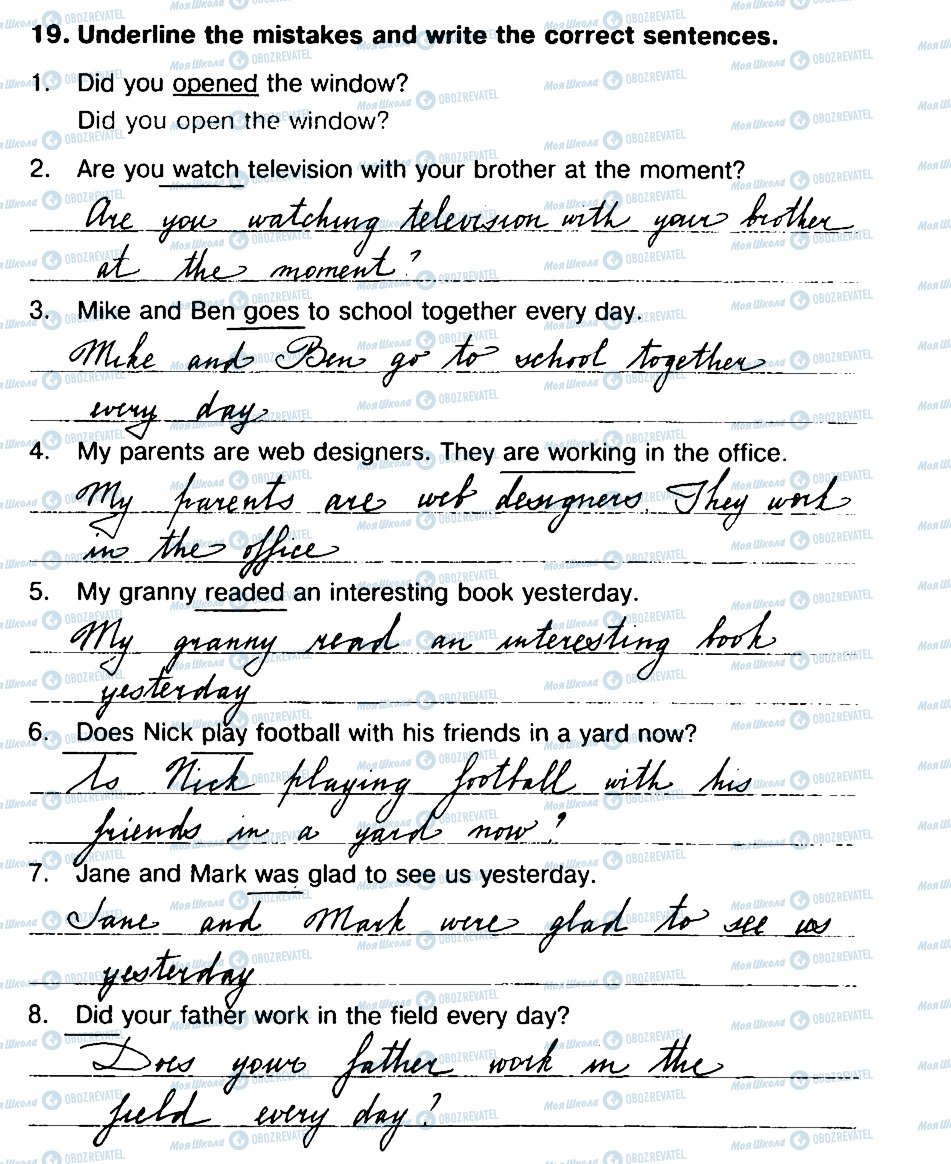 19. Underline the mistakes and write the correct sentences.
1. Did you opened the window?
Did you open the window?
2. Are you watch television with your brother at the moment?
Are you watching television with your brother
at the moment?
3. Mike and Ben goes to school together every day.
Mike and Ben go to school together
every day
4. My parents are web designers. They are working in the office.
My parents are web designers. They work
in the office
5. My granny readed an interesting book yesterday.
My granny read an interesting book
yesterday
6. Does Nick play football with his friends in a yard now?
Is Nick playing football with his
friends in a yard now?
7. Jane and Mark was glad to see us yesterday.
Jane and Mark were glad to see us
yesterday
8. Did your father work in the field every day?
Does your father work in the
field every day?
МояШкола OBOZREVATEL